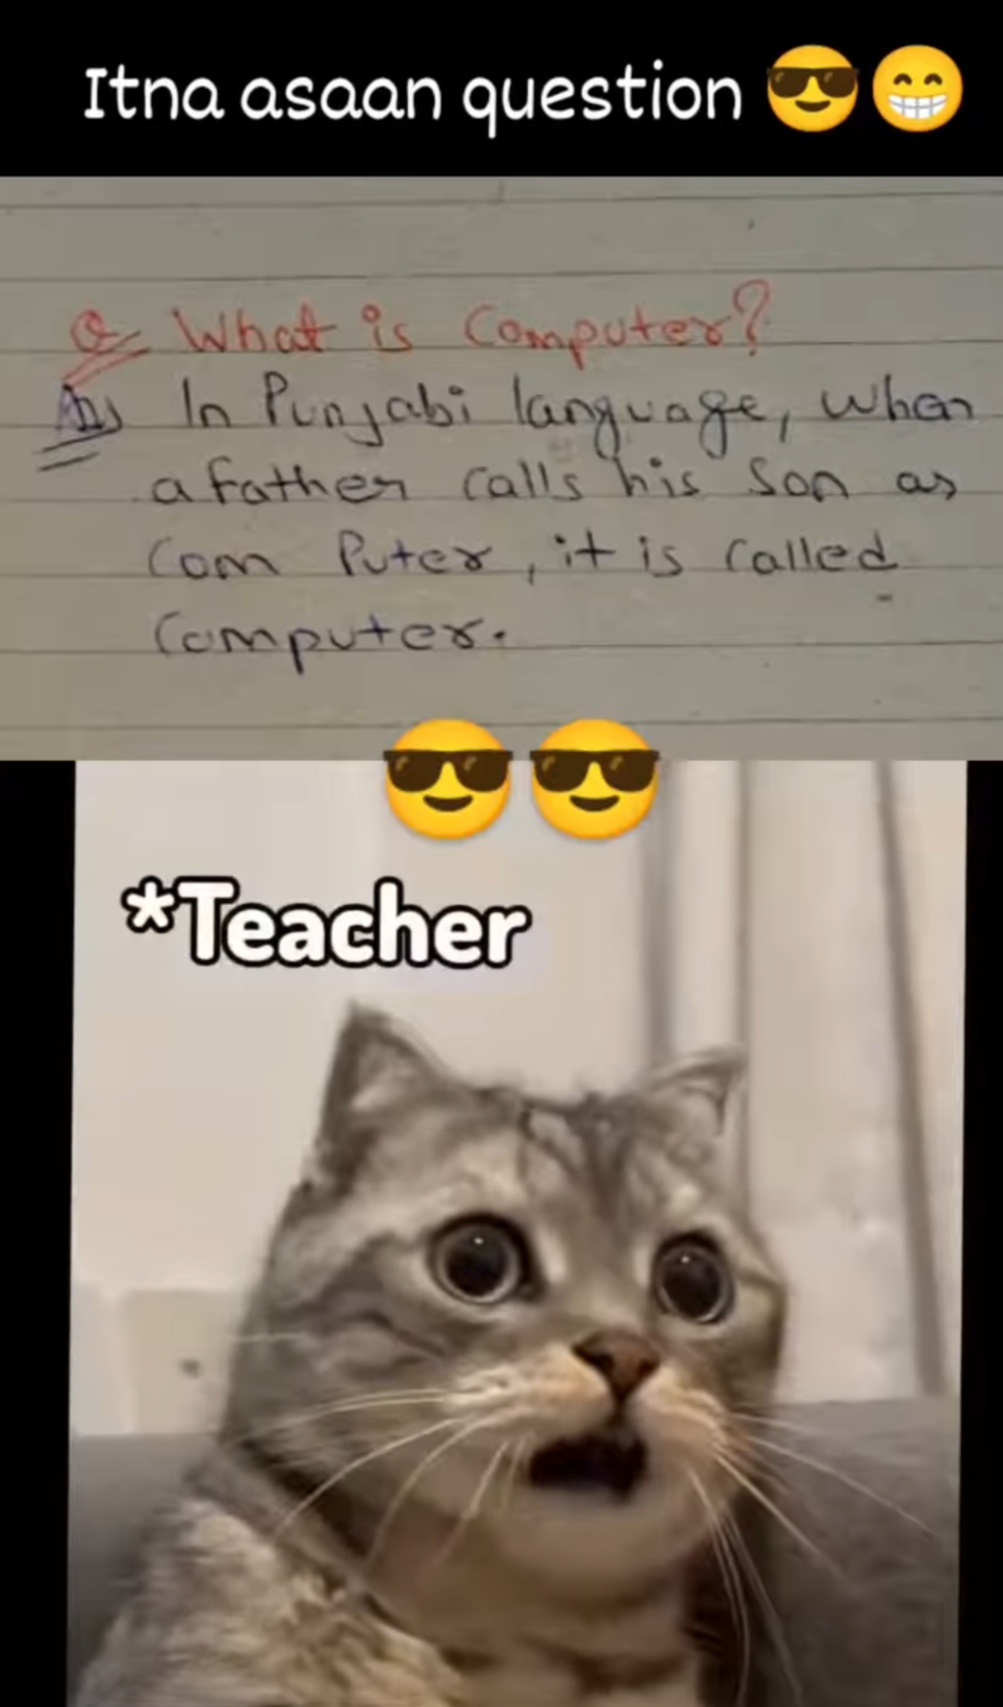 Itna asaan question 😎😁
Q What is Computer?
Ans In Punjabi language, when
a father calls his Son as
Com Puter, it is called
Computer.
😎😎
*Teacher